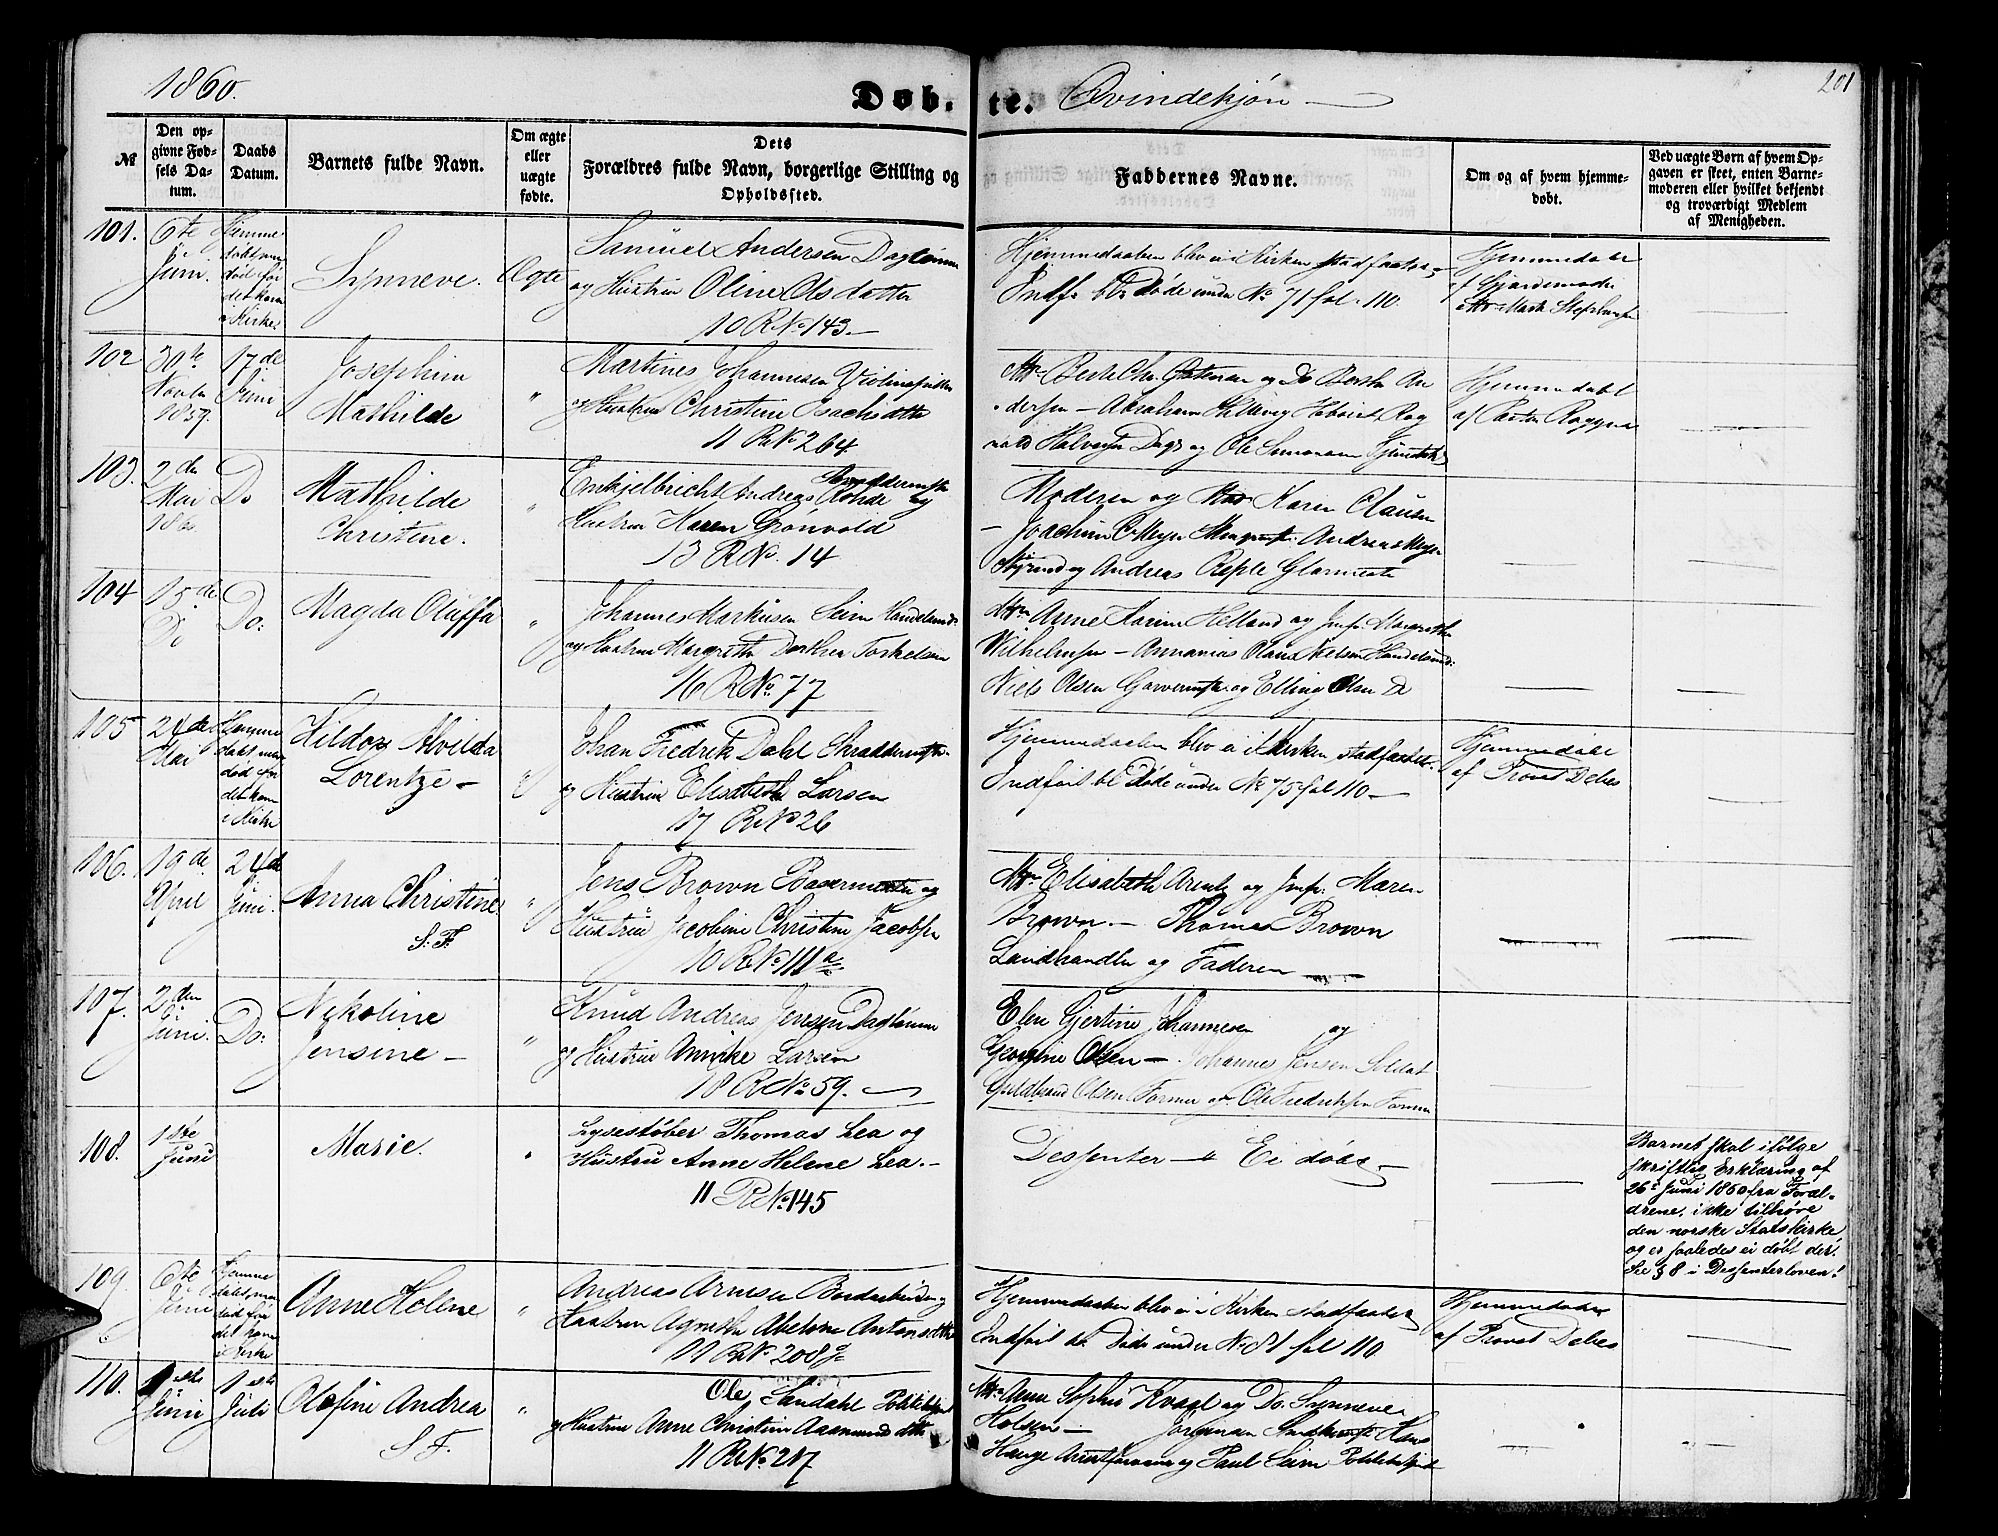 1860.
Døb-te. Qvindekjøn
201
№
Den opgivne Fødsels Datum.
Daabs Datum.
Barnets fulde Navn.
Om ægte eller uægte fødte.
Dets Forældres fulde Navn, borgerlige Stilling og Opholdssted.
Faddernes Navne.
Om og af hvem hjemmedøbt.
Ved uægte Børn af hvem Opgaven er skeet, enten Barnemoderen eller hvilket bekjendt og troværdigt Medlem af Menigheden.
101. 6te Juni.
Hjemme
døbt men
død før
det kom
i Kirke
Synneve. Ægte
Samuel Andersen Daglønner
og Hustru Oline Olsdatter
10 R No 143.
Hjemmedaaben blev ei i Kirken stadfæstet
Indf. bl. Døde under No 71 fol. 110.
Hjemmedøbt
af Gjordemoder
102 30te Novbr 1859. 17de Juni
Josephine
Mathilde
"
Martines Johannesen Violinspiller
og Hustru Christine Isachsdtr
11 R No 264
Berte Chr. og Do Berthe An
dersen - Abraham
nald Halvorsen Dags og Ole Simonsen
Hjemmedøbt
af Pastor
103. 2den Mai 1860 Do
Mathilde
Christine.
"
Enkjelbricht Andreas Rohde Skræddermstr og
Hustru Karen Grønvold
13 R No. 14
Moderen og Karen Clausen
- Joachim C Meyer Andreas Meyer
og Andreas Glarmester
104 15de Do Do:
Magda Oluffa
"
Johannes Markusen Seim Handelsmd.
og Hustru Margrethe Dorthea Torkelsen
16 R No. 77
Anne Karine Helland og Jmfr. Margrethe
Wilhelmsen - Annanias Olaus Nielsen Handelsmd.
Niels Olsen Garvermstr. og Elling Olsen Do
105 24de Mai
Hjemme
døbt men
død før
det kom
i Kirke
Hildog Alvilda
Lorentze -
"
Johan Fredrik Dahl Skræddermstr.
og Hustru Elisabeth Larsen
17 R No 26
Hjemmedaaben blev ei i Kirken stadfæstet.
Indført bl. Døde under No 75 fol 110
Hjemmedøbt
af Provst Debes
106. 19de April 24de Juni.
Anna Christine
S. F.
"
Jens Brown Bagermester og
Hustru Jacobine Christine Jacobsen
10 R No. 111a
Elisabeth Arentz og Jmfr. Maren
Brown. - Thomas Brown
Landhandler og Faderen
107. 2den Juni. Do:
Nikoline
Jensine -
"
Knud Andreas Jensen Daglønner
og Hustru Annike Larsen
18 R No 59.
Elen Gjertine Johannesen og
Georgine Olsen - Johannes Jensen Soldat
Guldbrand Olsen Former og Ole Fredriksen Former
108. 1ste Juni
Marie.
"
Lysestøber Thomas Lea og
Hustru Anne Helene Lea.
11 R No. 145
Dessenter - Ei døbt -
Barnet skal ifølge
skriftlig Erklæring af
26de Juni 1860 fra Foræl-
drene, ikke tilhøre
den norske Statskirke
og er saaledes ei døbt der.
See § 8 i Dessenterloven!
109. 6te Juni
Hjemme
døbt men
død før
det kom
i Kirke
Anne Helene
"
Andreas Arnesen og
Hustru Agnethe Abelone Antonsdtr
11 R No. 208
Hjemmedaaben blev ei i Kirken stadfæstet
Indført bl. Døde under No 81 fol 110
Hjemmedøbt
af Provst Debes
110. 1ste Juni 1ste Juli
Olefine Andrea
S. F.
"
Ole Sandahl Politibetjent
og Hustru Anne Christine Aasmundsdtr
11 R No. 217
Anne Sophie Kvaal og Do. Synneve
Holsen - Jørgensen Hans
Hauge og Paul Seim Politibetjent